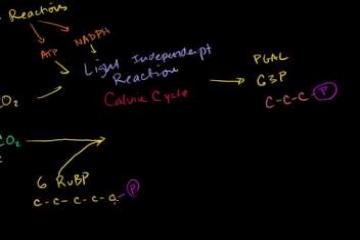 Reactions
ATP NADPH
Light Independent
Reaction
Calvin Cycle
PGAL
G3P
C-C-C-P
CO₂
CO₂
6 RuBP
C-C-C-C-C-P